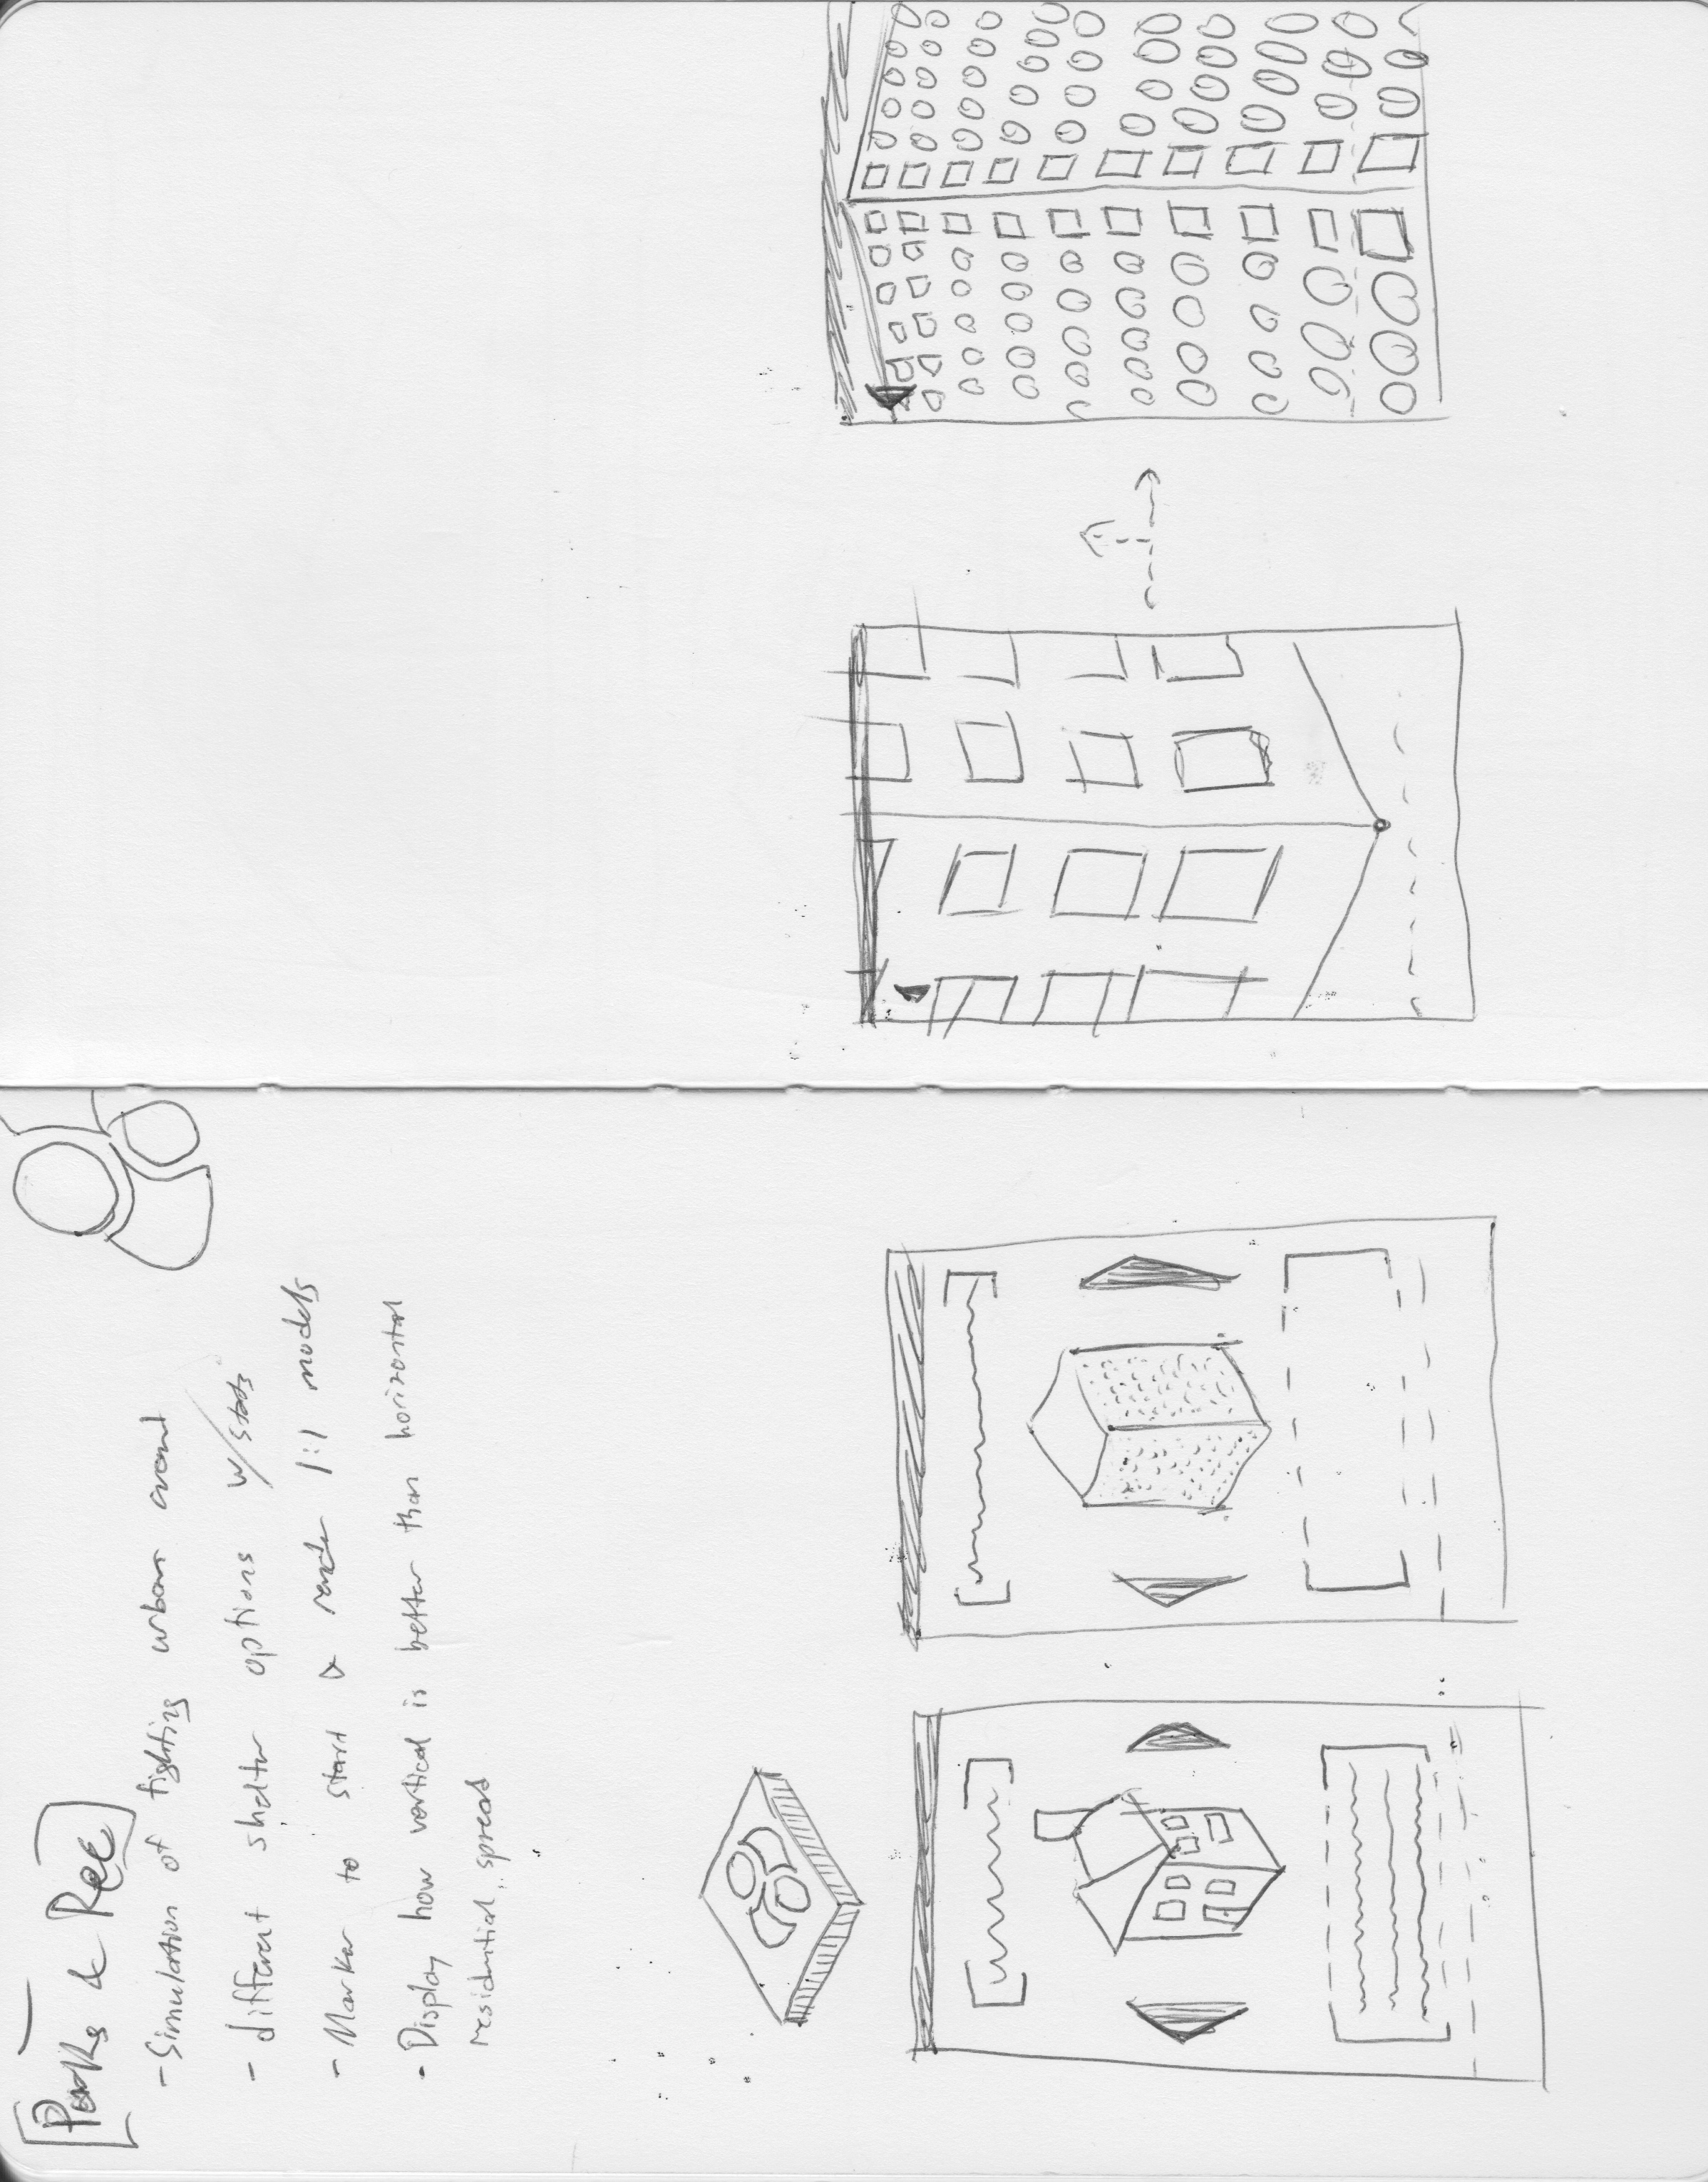 [Parks & Rec]
- Simulation of fighting urban
- different shelter options w/ stats
- Marker to start & render 1:1 models
- Display how vertical is better than horizontal
residential spread